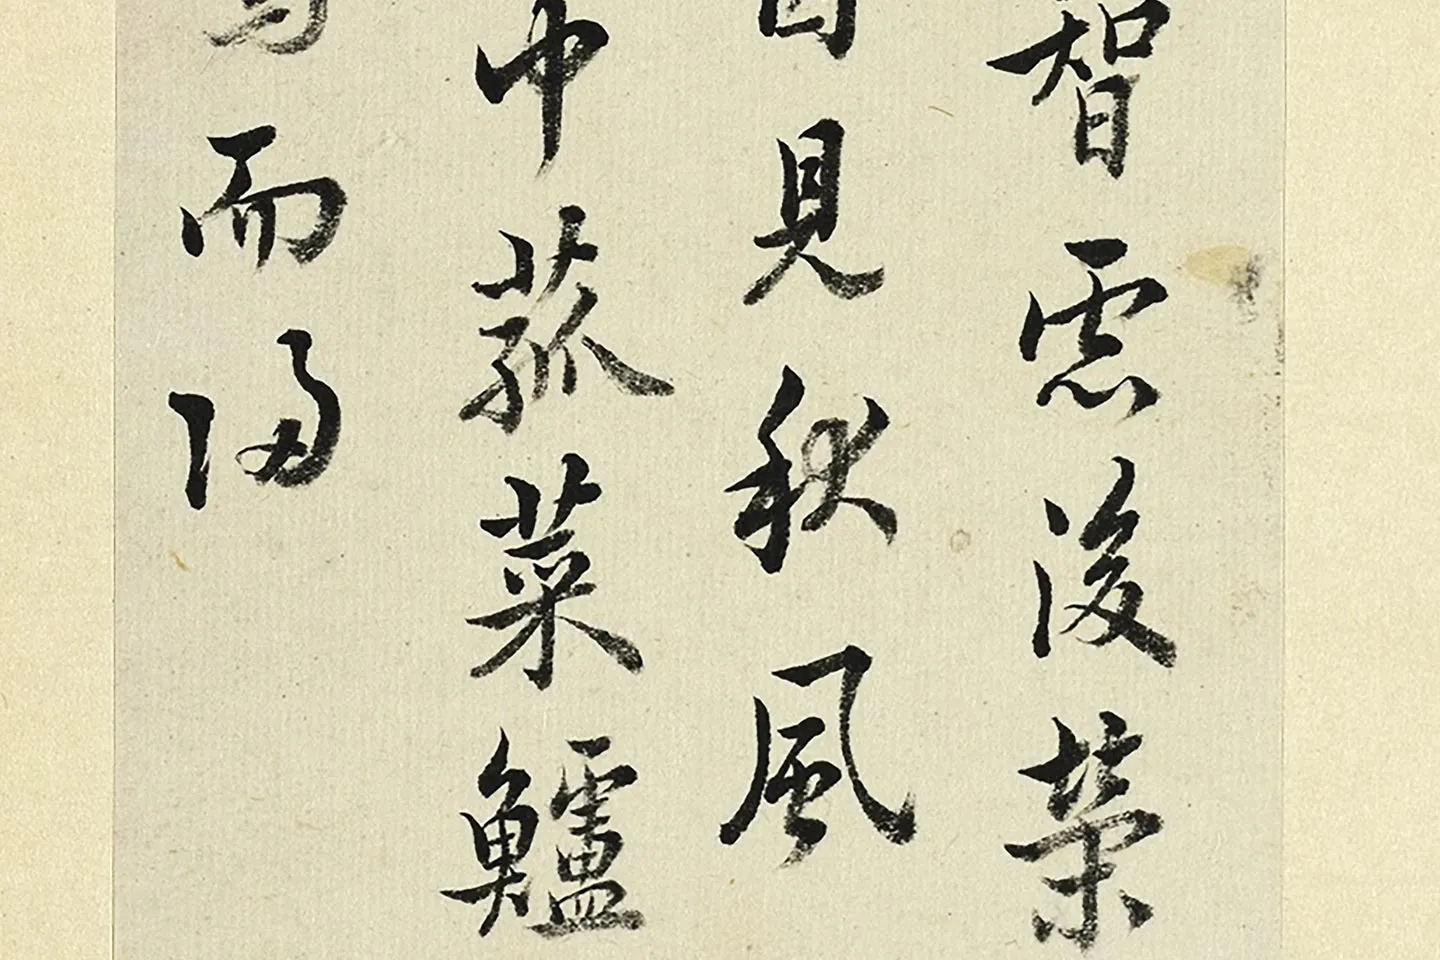 智慮後榮
因見秋風
中菰菜鱸
駕而歸